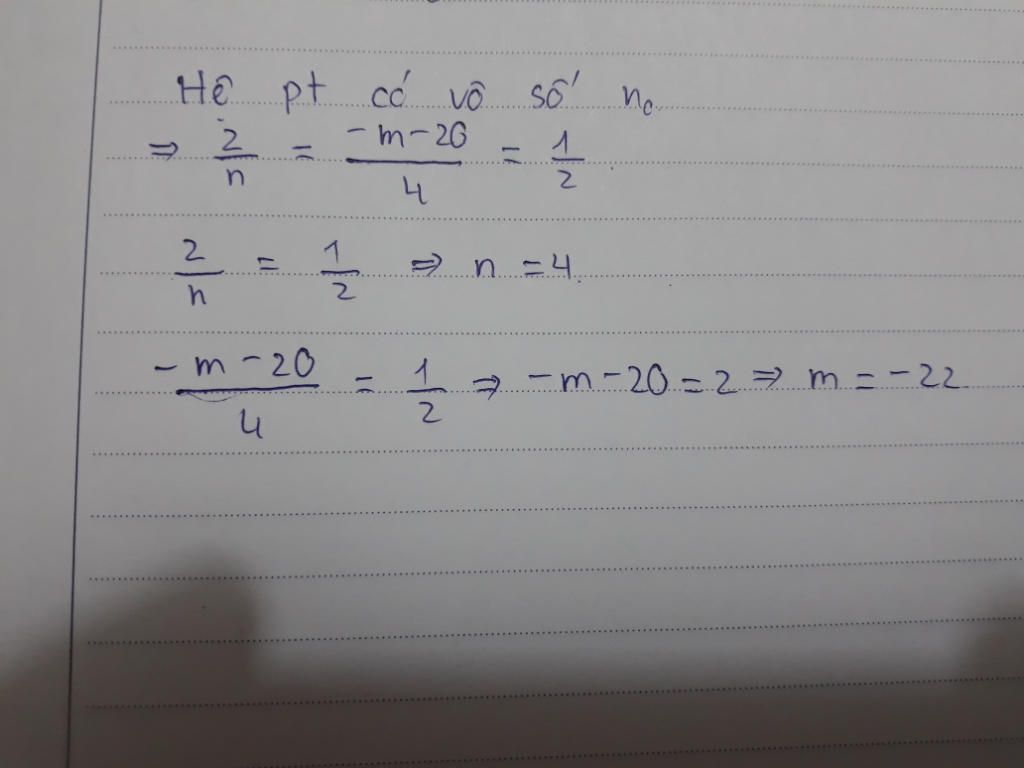 Hệ pt có vô số n₀
⇒ 2/n = (-m-20)/4 = 1/2.
2/n = 1/2 ⇒ n = 4.
(-m-20)/4 = 1/2 ⇒ -m-20 = 2 ⇒ m = -22